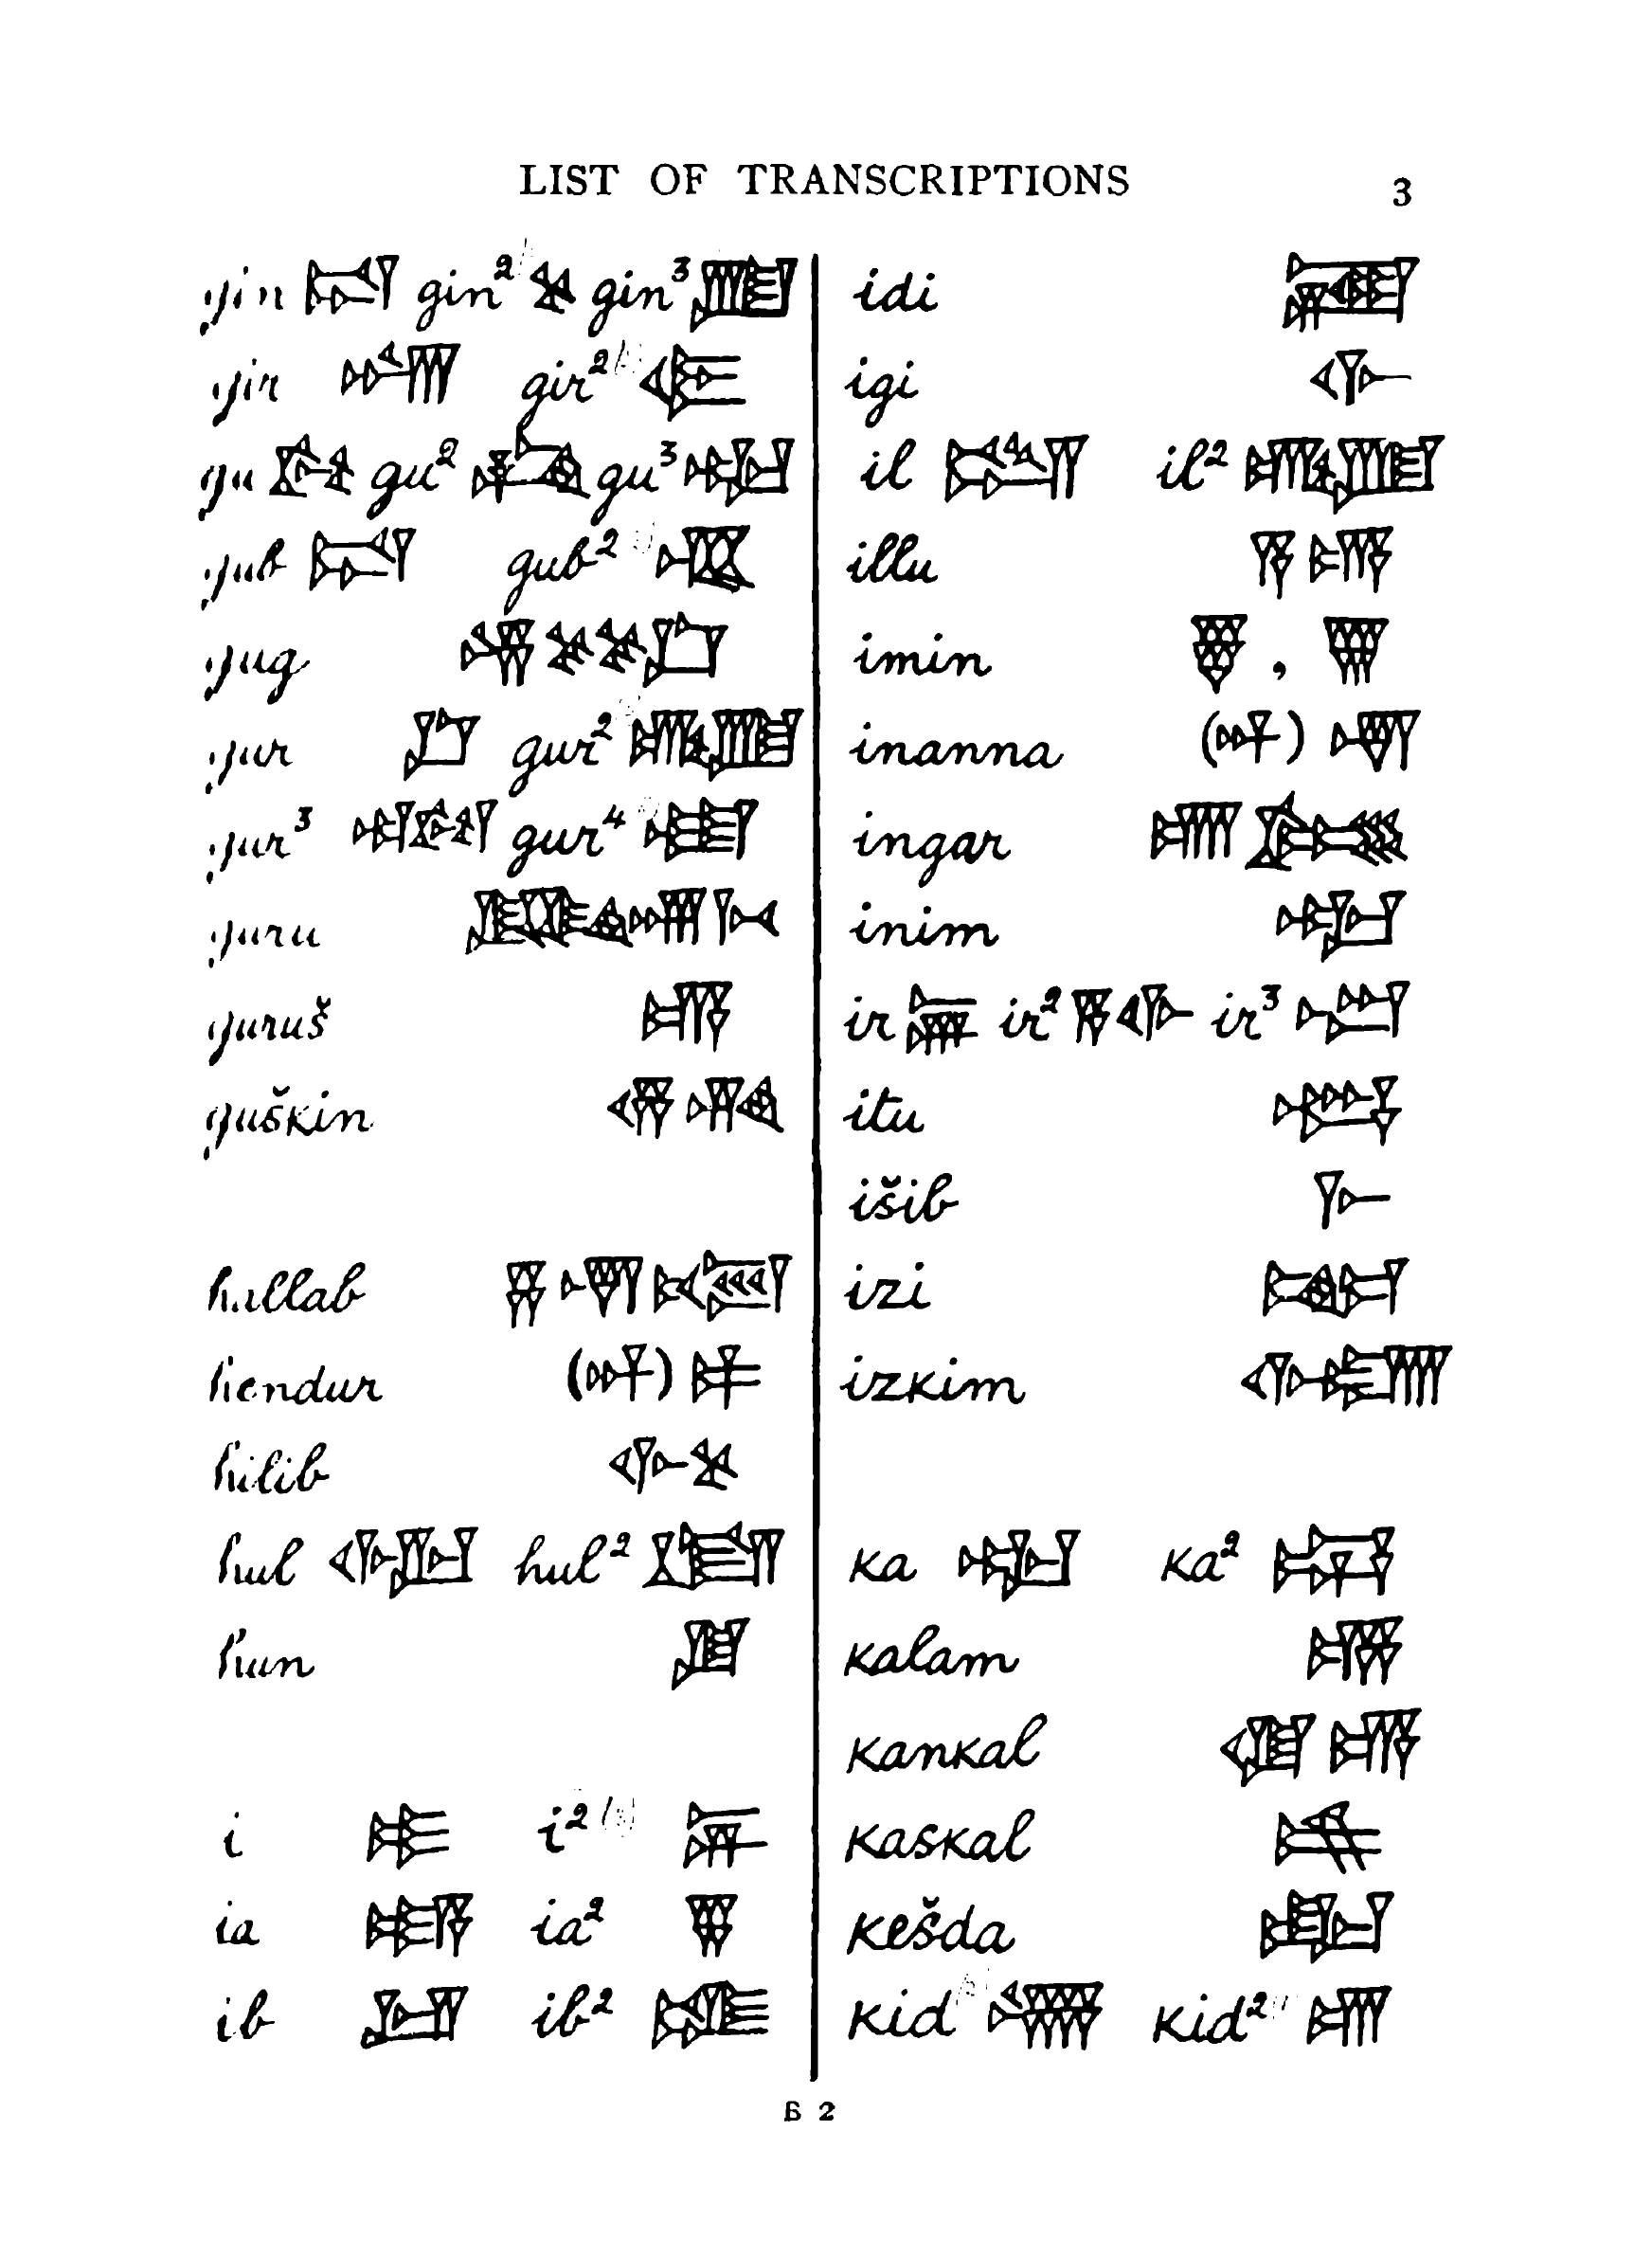 LIST OF TRANSCRIPTIONS 3
gin 𒁺 gin² 𒂅 gin³
gir gir²
gu 𒄖 gu² 𒄘 gu³ 𒅗
gub 𒁺 gub² 𒇷
gug
gur 𒄥 gur² 𒅍
gur³ gur⁴
guru
guruš 𒆗
guškin 𒆬𒄀
hallab 𒍝𒈹𒀕
hendur (𒀭) 𒉺
hilib
hul hul² 𒄾
hun 𒂠
i 𒄿 i² 𒉌
ia 𒅀 ia² 𒐊
ib 𒅁 ib² 𒌈
idi
igi 𒅆
il 𒅋 il² 𒅍
illu 𒀀𒆗
imin ,
inanna (𒀭) 𒈹
ingar
inim 𒅗
ir 𒅕 ir² 𒀀𒅆 ir³
itu 𒌗
išib 𒈨
izi 𒉈
izkim
ka 𒅗 ka² 𒆍
kalam 𒌦
kankal 𒆠𒆗
kaskal 𒆜
kešda 𒆟
kid 𒆤 kid²
B 2